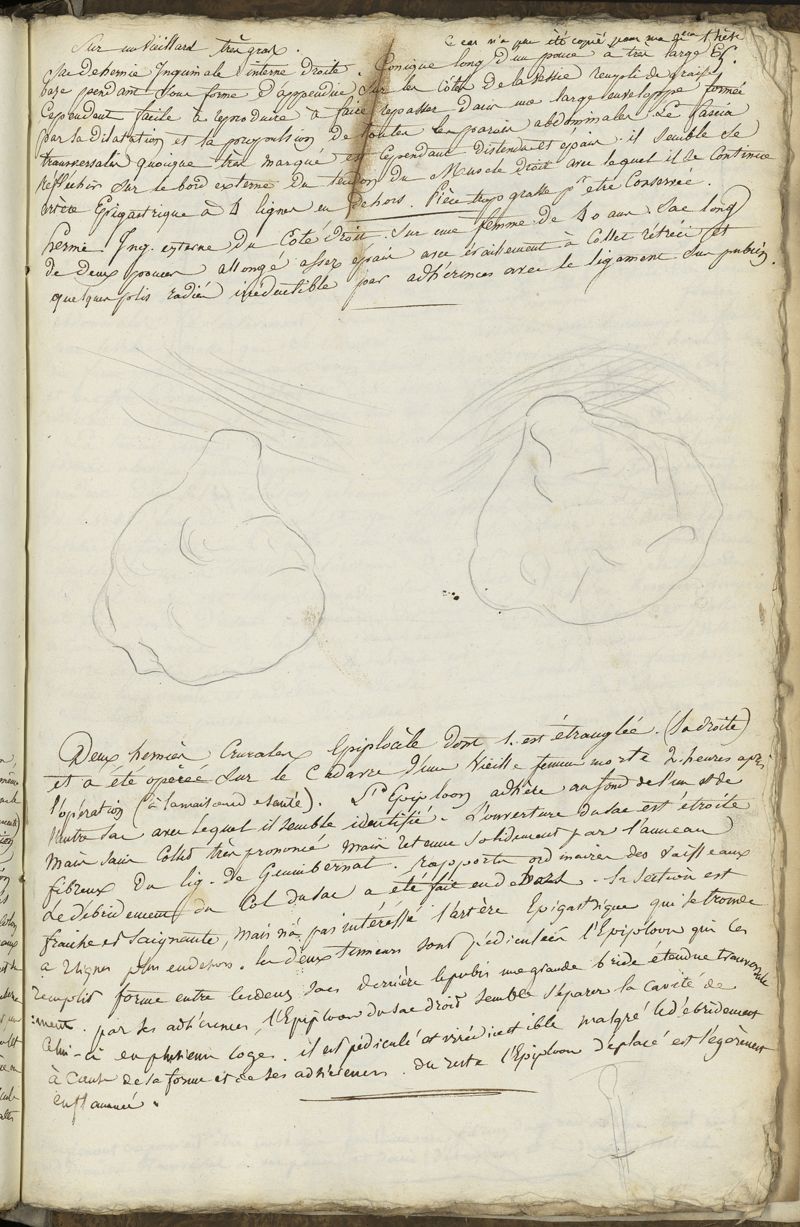 Sur un vieillard très gras.
ce cas n'a pas été copié pour ma thèse
Sac de hernie Inguinale interne droite. Conique long d'un pouce à très large
base pendant sous forme d'appendice sur les côtés de la vessie rempli de graisse
Cependant facile à reproduire à faire repasser dans une large enveloppe formée
par la dilatation et la propulsion de toutes les parois abdominales. Le fascia
transversalis quoique très marqué est cependant distendu et épais. il semble se
réfléchir sur le bord externe du tendon du Muscle droit avec lequel il se continue
artère Epigastrique à 4 lignes en dehors. Pièce trop grasse pr etre Conservée.
hernie Ing. externe du Coté droit. Sur une femme de 40 ans. Sac long
de Deux pouces allongé assez épais avec éraillement à Collet rétréci et
quelques plis radiés irréductible par adhérences avec le ligament Sus pubien.
Deux hernies Crurales Epiplocèle dont 1. est étranglée. (la droite)
et a été opérée sur le Cadavre d'une vieille femme morte 2. heures après
l'opération (à la maison de santé). L'Epiploon adhère au fond de l'un et de
l'autre sac avec lequel il semble identifié. L'ouverture du sac est étroite
Mais sans Collet très prononcé Mais retenue solidement par l'anneau
fibreux du lig. de Geumbernat. rapports ordinaires des vaisseaux
Le débridement du Col du sac a été fait en dehors. la section est
fraiche et Saignante, mais n'a pas intéressé l'artère Epigastrique qui se trouve
à 2 lignes plus en dehors. les deux tumeurs sont pédiculées l'Epiploon qui les
remplit forme entre les deux sacs derrière le pubis une grande bride étendue transversale
:ment. par ses adhérences, l'Epiploon du sac droit semble séparer la cavité de
Celui-ci en plusieurs loges. il est pédiculé et irréductible malgré le débridement
à Cause de sa forme et de ses adhérences. du reste l'Epiploon déplacé est légèrement
enflammé.